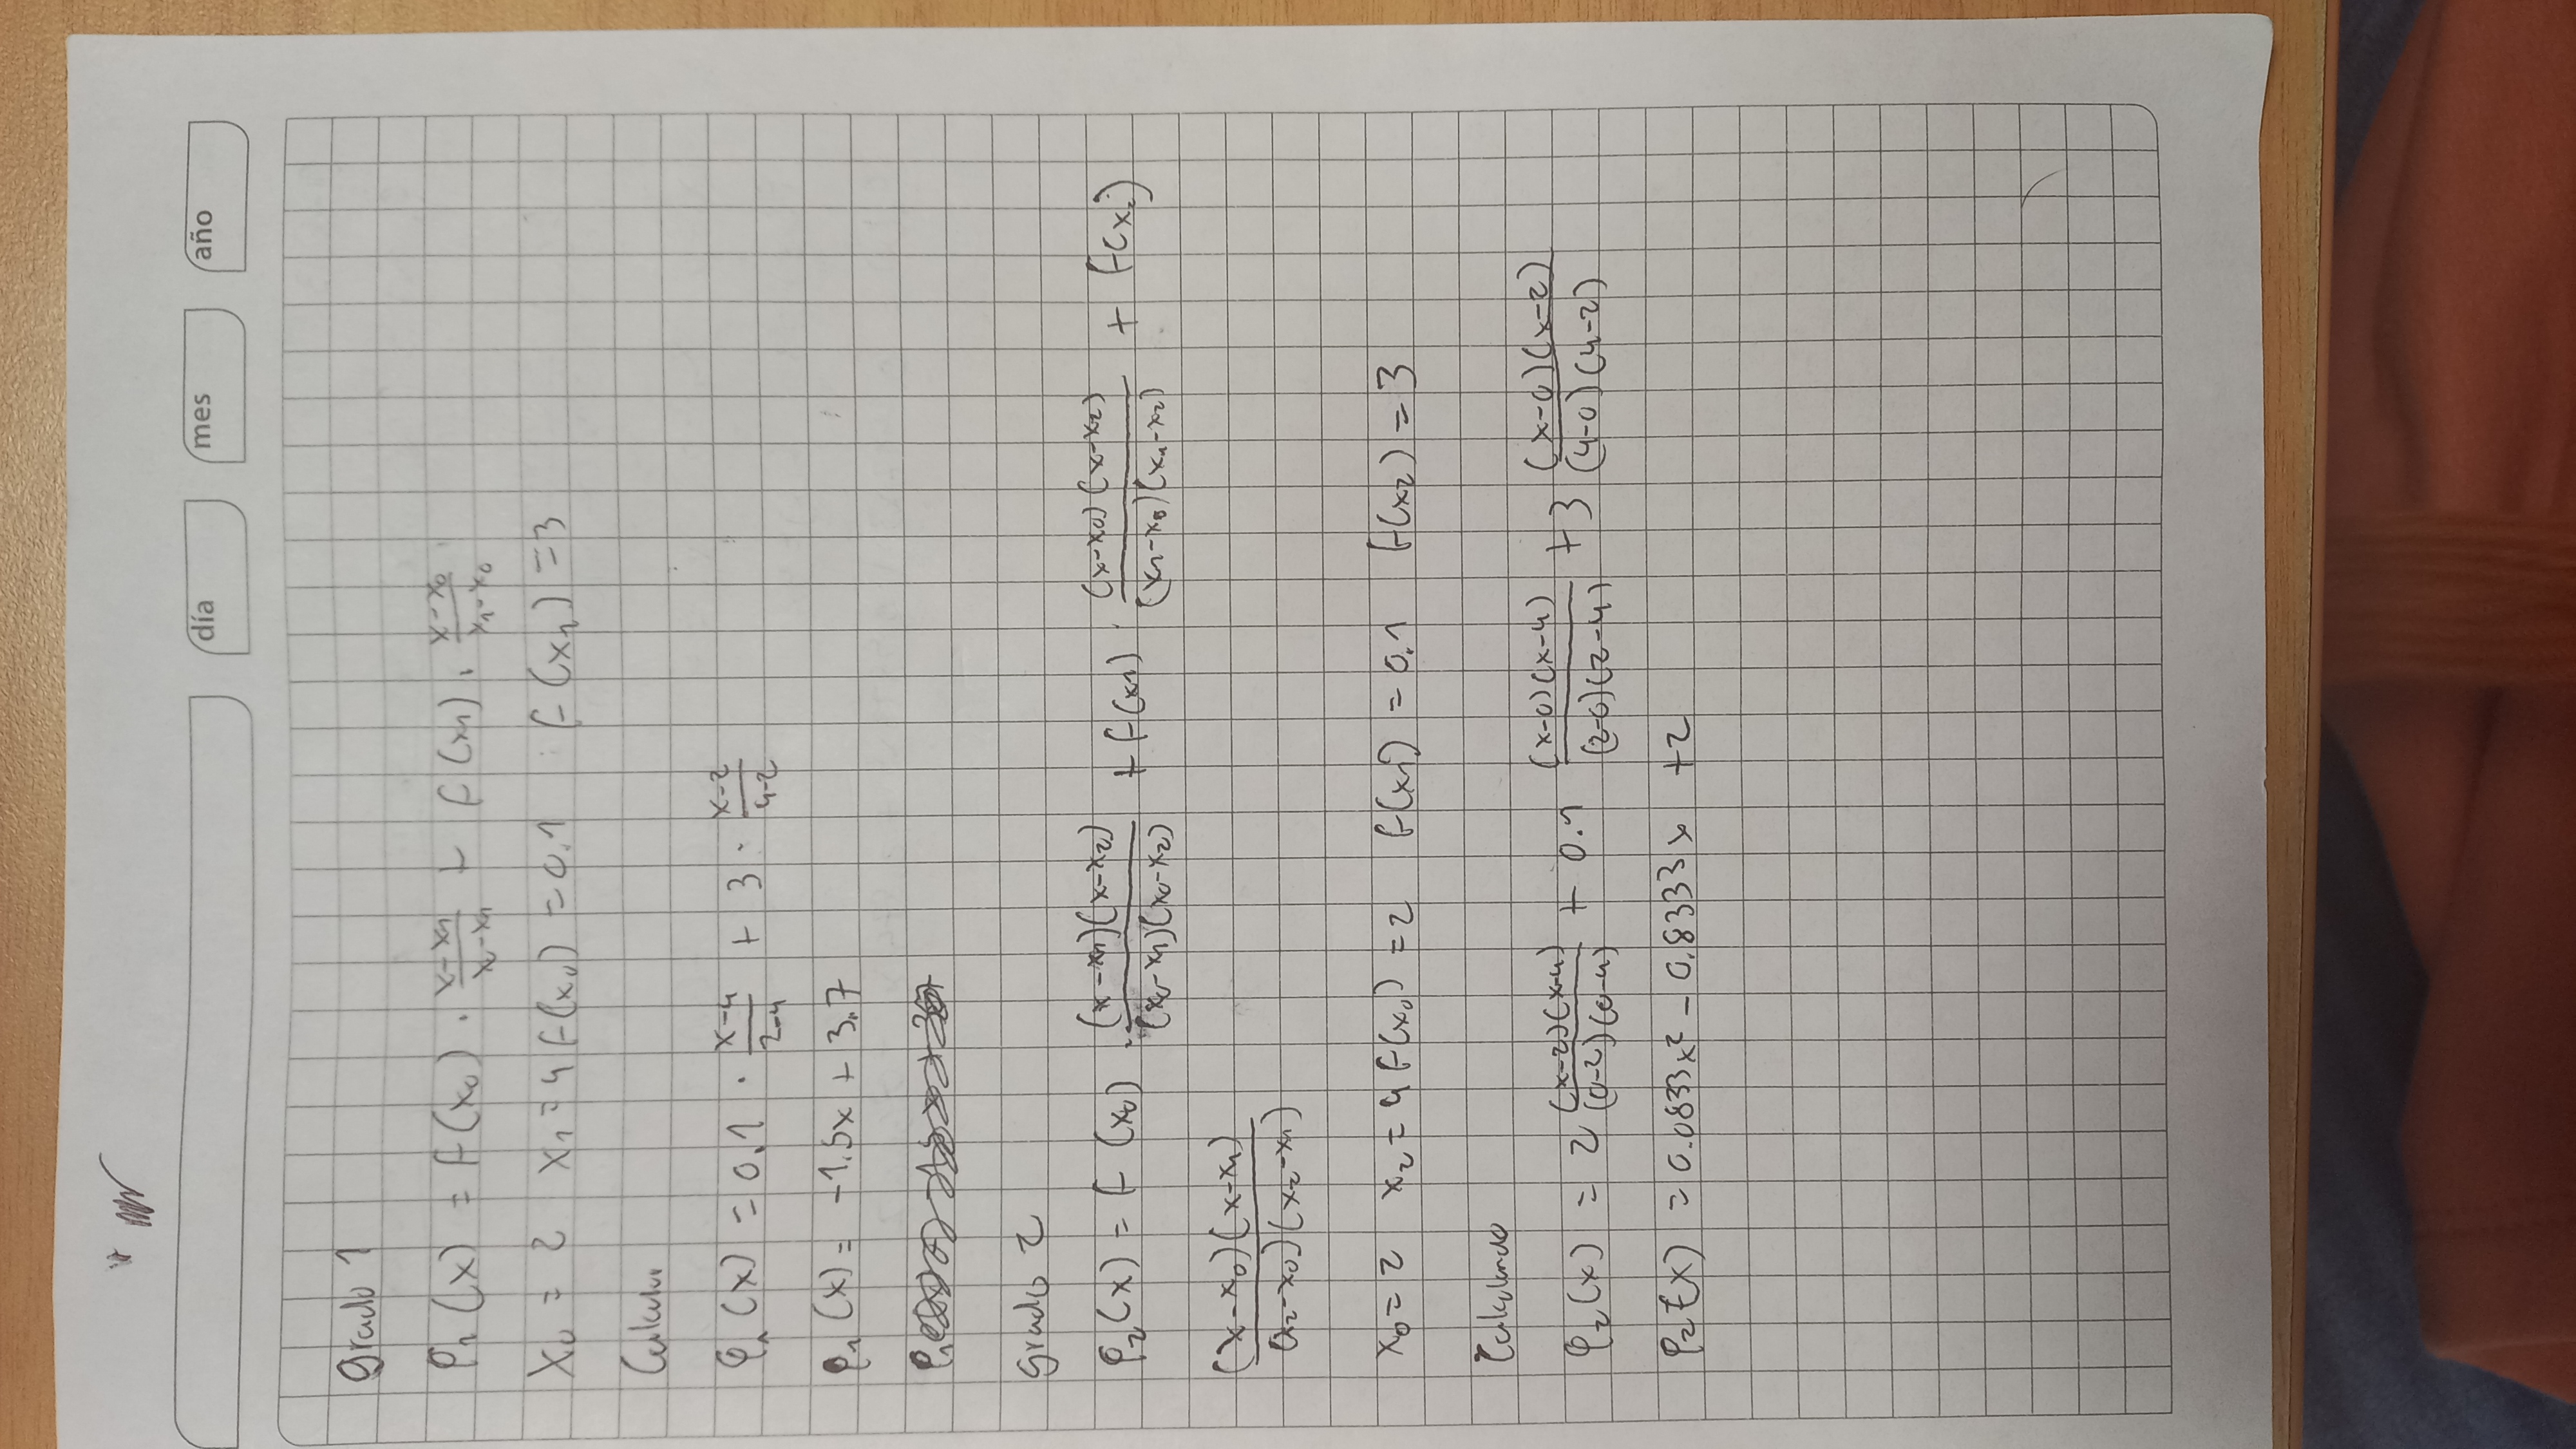 día mes año
Grado 1
P₁(x) = f(x₀) · (x-x₁)/(x₀-x₁) + f(x₁) · (x-x₀)/(x₁-x₀)
x₀ = 2 x₁ = 4 f(x₀) = 0.1 f(x₁) = 3
P₁(x) = 0.1 · (x-4)/(2-4) + 3 · (x-2)/(4-2)
P₁(x) = -1.5x + 3.7
Grado 2
P₂(x) = f(x₀) · (x-x₁)(x-x₂)/(x₀-x₁)(x₀-x₂) + f(x₁) · (x-x₀)(x-x₂)/(x₁-x₀)(x₁-x₂) + f(x₂)
(x-x₀)(x-x₁)/(x₂-x₀)(x₂-x₁)
x₀ = 2 x₂ = 4 f(x₀) = 2 f(x₁) = 0.1 f(x₂) = 3
Calculando
P₂(x) = 2 (x-2)(x-4)/(0-2)(0-4) + 0.1 (x-0)(x-4)/(2-0)(2-4) + 3 (x-0)(x-2)/(4-0)(4-2)
P₂(x) = 0.0833x² - 0.8333x + 2